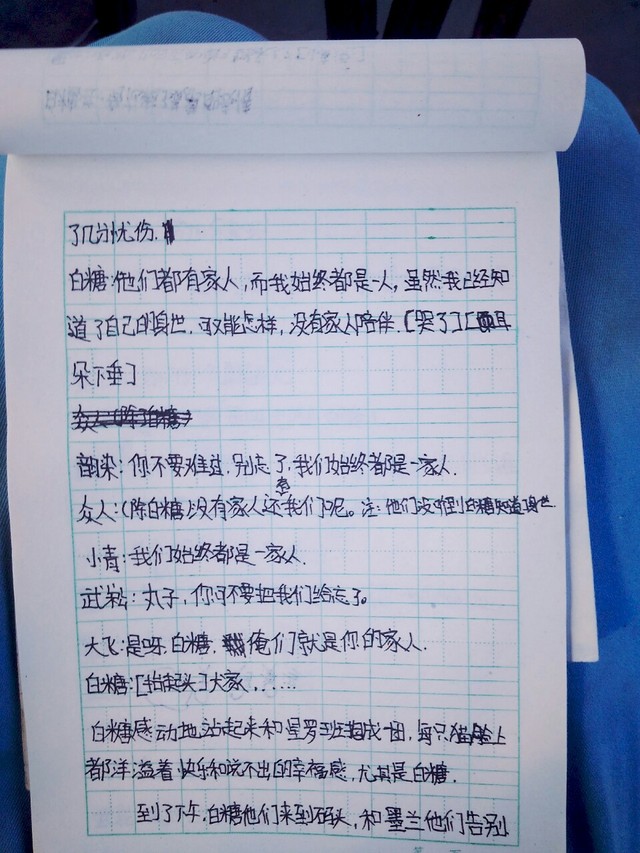 了几分忧伤.
白糖:他们都有家人,而我始终都是一人,虽然我已经知
道了自己的身世.可又能怎样,没有家人陪伴.[哭了][耳
朵下垂]
众人(除白糖)
韵染:你不要难过,别忘了,我们始终都是一家人.
众人:(除白糖)没有家人还有我们呢。注:他们没听到白糖知道身世
小青:我们始终都是一家人.
武崧:丸子,你可不要把我们给忘了。
大飞:是呀.白糖.俺们就是你的家人.
白糖:[抬起头]大家,.....
白糖感动地站起来和星罗班抱成一团,每只猫脸上
都洋溢着快乐和说不出的幸福感,尤其是白糖.
到了下午.白糖他们来到码头,和墨兰他们告别